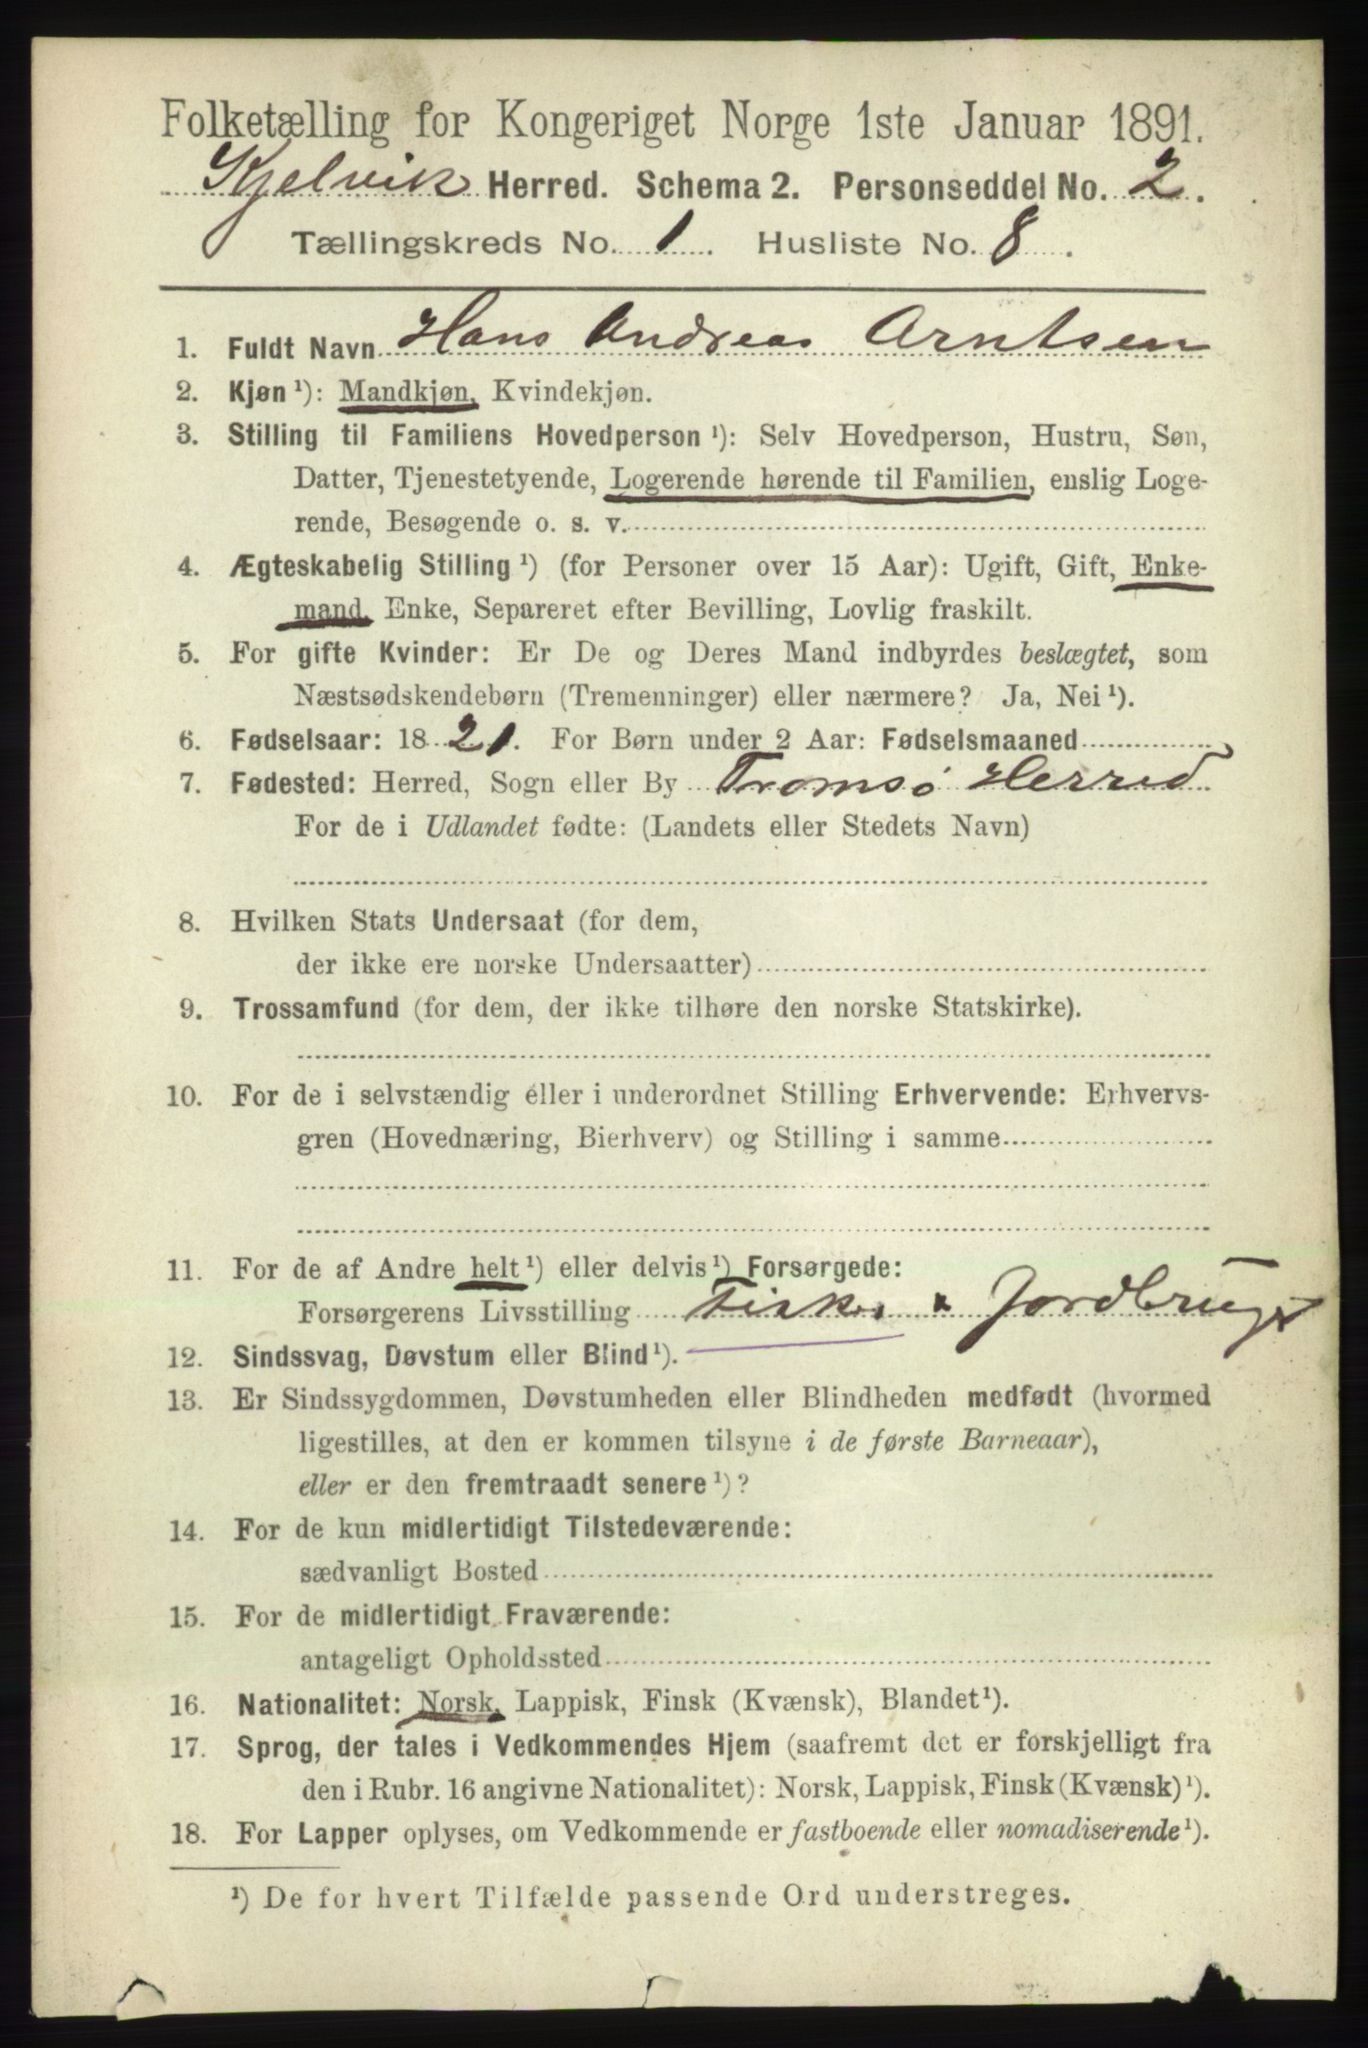 Folketælling for Kongeriget Norge 1ste Januar 1891.
Kjelvik Herred. Schema 2. Personseddel No. 2.
Tællingskreds No. 1. Husliste No. 8.
1. Fuldt Navn Hans Andreas Arntsen
2. Kjøn ¹): Mandkjøn, Kvindekjøn.
3. Stilling til Familiens Hovedperson ¹): Selv Hovedperson, Hustru, Søn,
Datter, Tjenestetyende, Logerende hørende til Familien, enslig Loge-
rende, Besøgende o. s. v.
4. Ægteskabelig Stilling ¹) (for Personer over 15 Aar): Ugift, Gift, Enke-
mand, Enke, Separeret efter Bevilling, Lovlig fraskilt.
5. For gifte Kvinder: Er De og Deres Mand indbyrdes beslægtet, som
Næstsødskendebørn (Tremenninger) eller nærmere? Ja, Nei ¹).
6. Fødselsaar: 1821. For Børn under 2 Aar: Fødselsmaaned
7. Fødested: Herred, Sogn eller By Tromsø Herred
For de i Udlandet fødte: (Landets eller Stedets Navn)
8. Hvilken Stats Undersaat (for dem,
der ikke ere norske Undersaatter)
9. Trossamfund (for dem, der ikke tilhøre den norske Statskirke).
10. For de i selvstændig eller i underordnet Stilling Erhvervende: Erhvervs-
gren (Hovednæring, Bierhverv) og Stilling i samme
11. For de af Andre helt ¹) eller delvis ¹) Forsørgede:
Forsørgerens Livsstilling Fisker x Jordbruger
12. Sindssvag, Døvstum eller Blind ¹).
13. Er Sindssygdommen, Døvstumheden eller Blindheden medfødt (hvormed
ligestilles, at den er kommen tilsyne i de første Barneaar),
eller er den fremtraadt senere ¹)?
14. For de kun midlertidigt Tilstedeværende:
sædvanligt Bosted
15. For de midlertidigt Fraværende:
antageligt Opholdssted
16. Nationalitet: Norsk, Lappisk, Finsk (Kvænsk), Blandet ¹).
17. Sprog, der tales i Vedkommendes Hjem (saafremt det er forskjelligt fra
den i Rubr. 16 angivne Nationalitet): Norsk, Lappisk, Finsk (Kvænsk) ¹).
18. For Lapper oplyses, om Vedkommende er fastboende eller nomadiserende ¹).
¹) De for hvert Tilfælde passende Ord understreges.